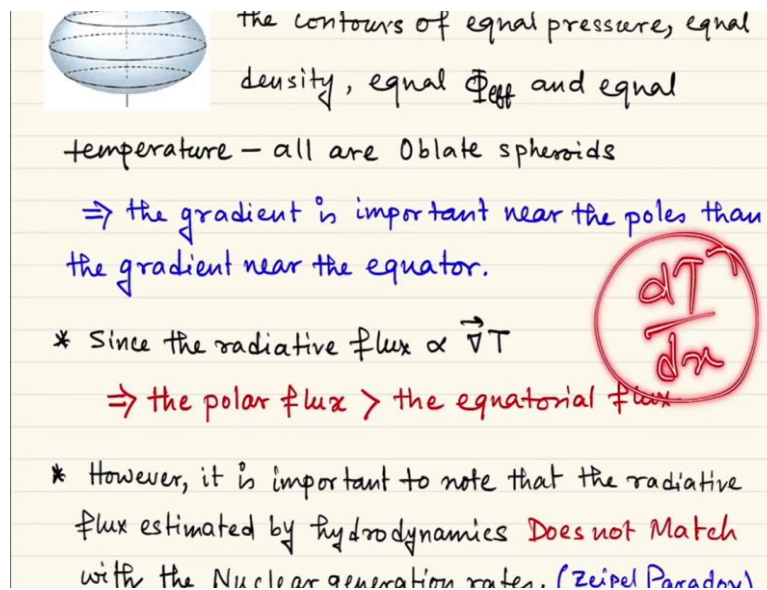 the contours of equal pressure, equal
density, equal Φeff and equal
temperature – all are Oblate spheroids
⇒ the gradient is important near the poles than
the gradient near the equator.
dT
dx
* Since the radiative flux ∝ ∇⃗T
⇒ the polar flux > the equatorial flux
* However, it is important to note that the radiative
flux estimated by hydrodynamics Does not Match
with the Nuclear generation rates. (Zeipel Paradox)